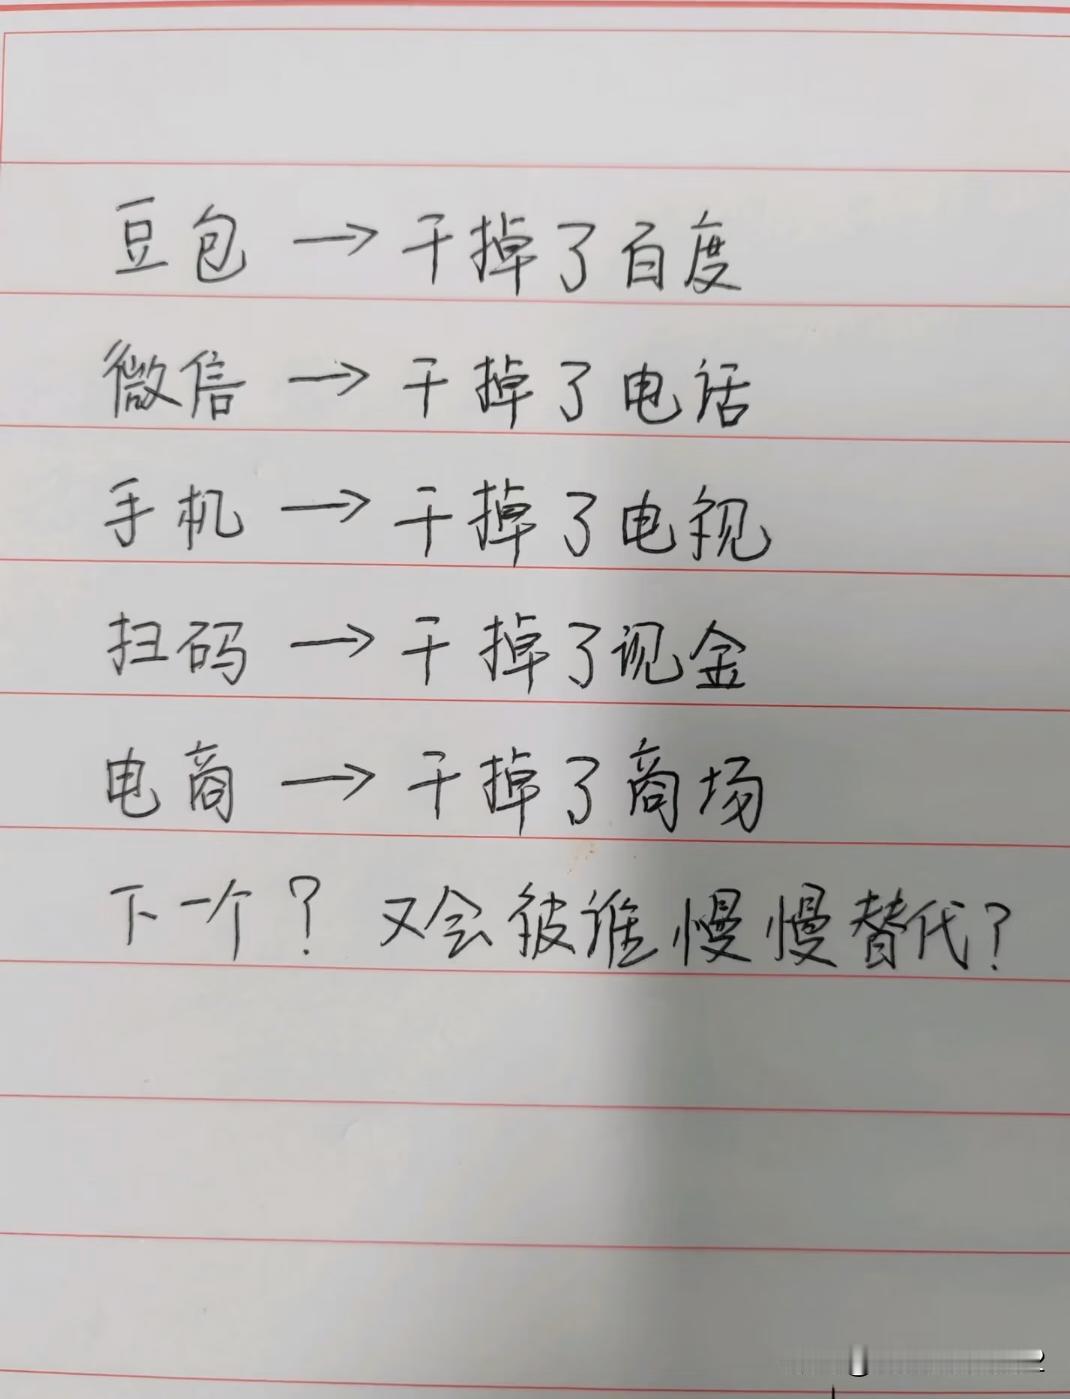 豆包 → 干掉了百度
微信 → 干掉了电话
手机 → 干掉了电视
扫码 → 干掉了现金
电商 → 干掉了商场
下一个？又会被谁慢慢替代？